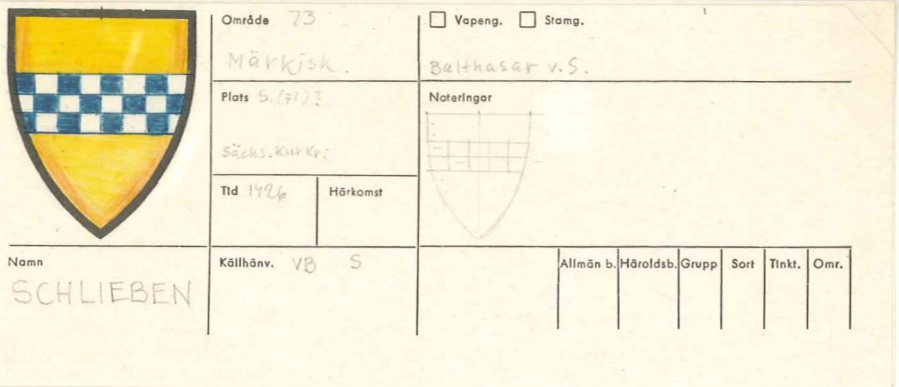 Område 73
Märkisk.
Plats S. (71)?
Sächs. Kurkr.
Tid 1426
Härkomst
Källhänv. VB S
Namn
SCHLIEBEN
Vapeng. Stamg.
Balthasar v. S.
Noteringar
Allmän b. Häroldsb. Grupp Sort Tinkt. Omr.